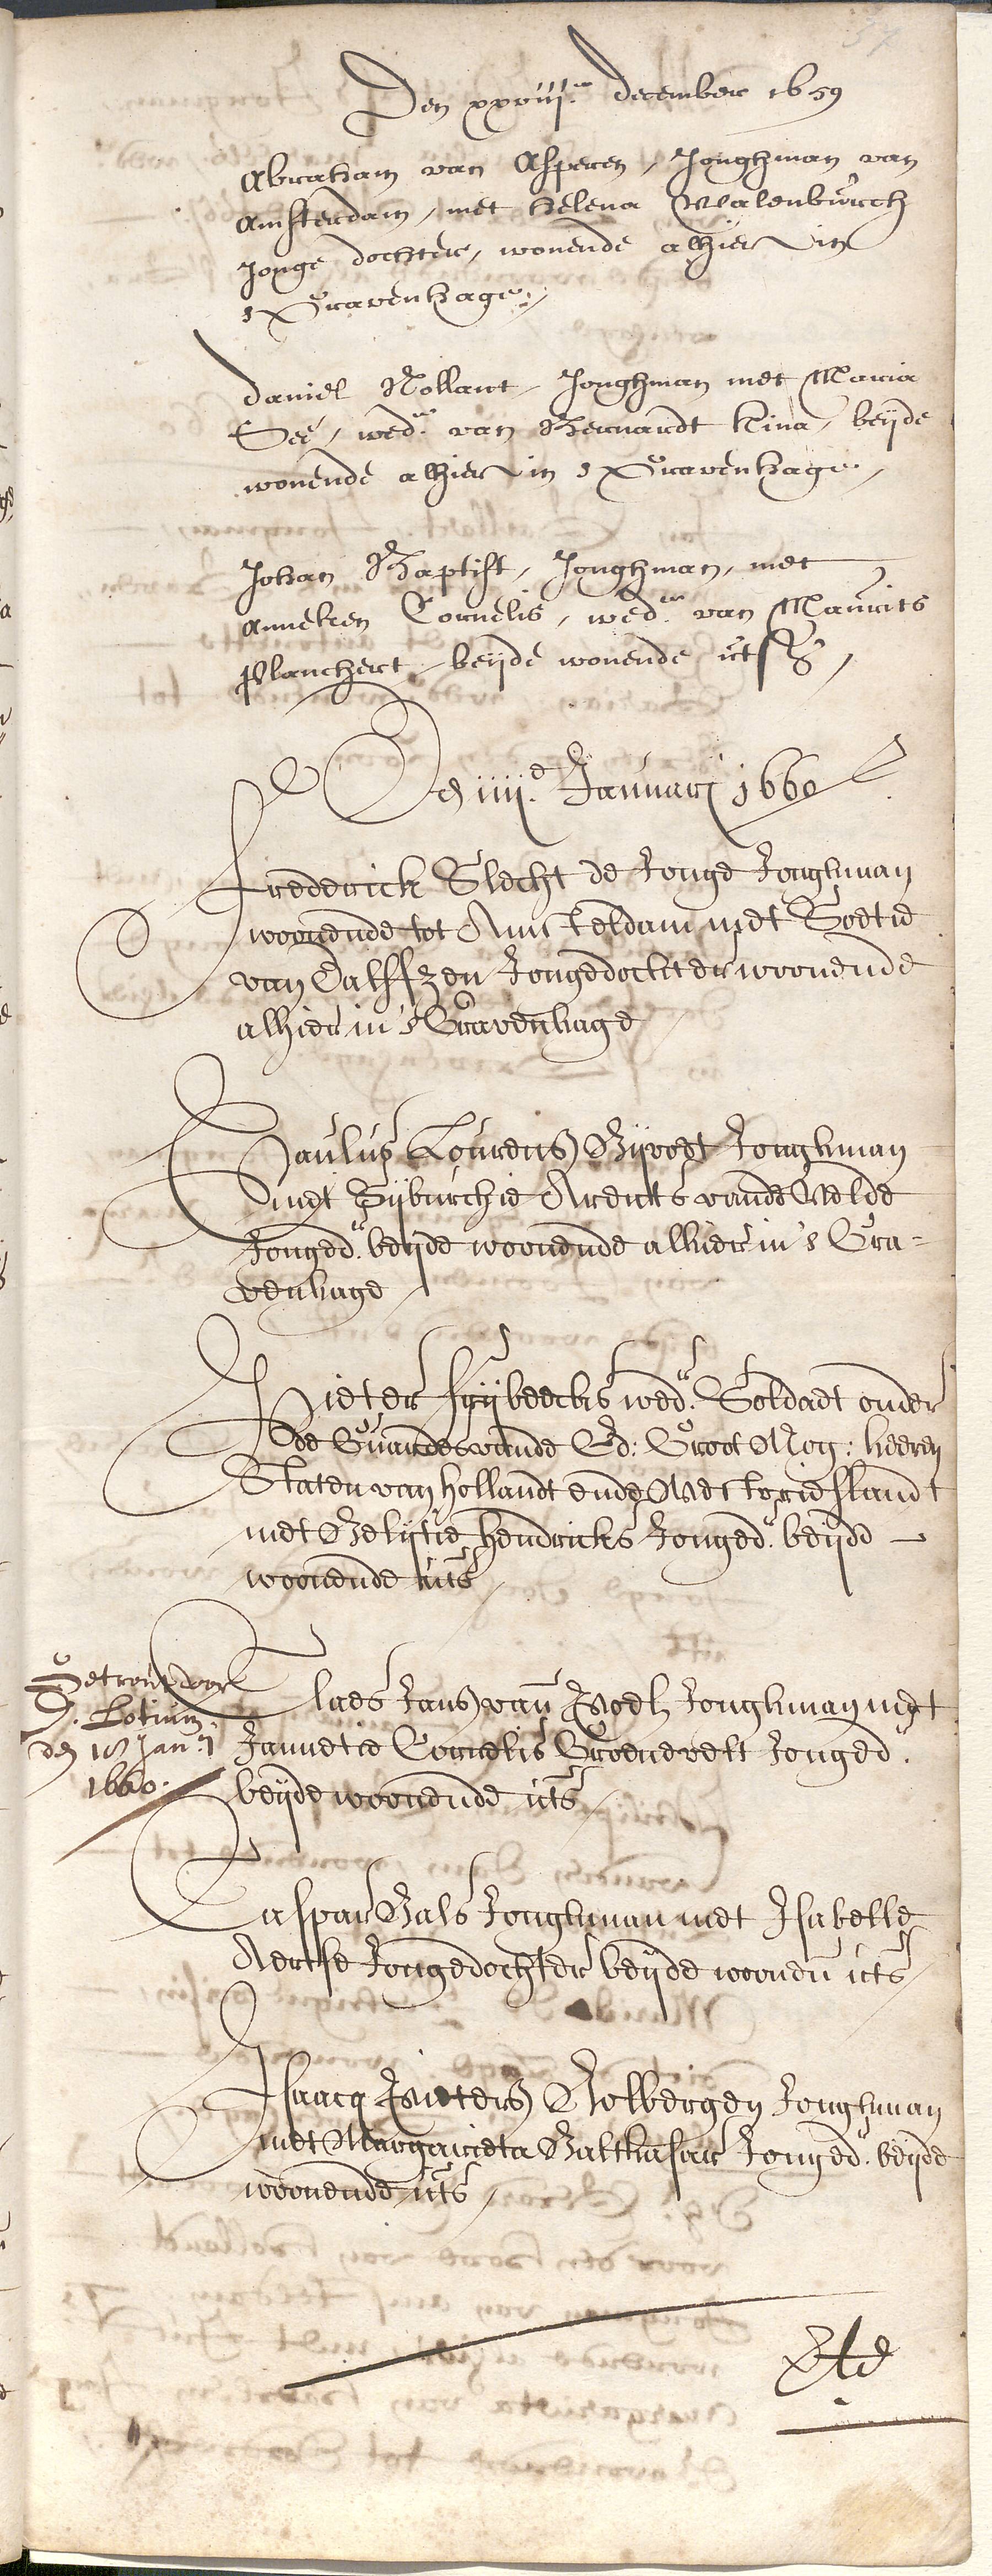 57
Den xxviij.en december 1659
Abraham van Asperen, Jonghman van
Amsterdam, met Helena Walenburch
Jonge dochter, wonende alhier in
s Gravenhage,
Daniel Rollant, Jonghman met Maria
Seé, wed.e van Bernardt Kina, beijde
wonende alhier in s Gravenhage,
Johan Baptist, Jonghman, met
Anneken Cornelis, wed.e van Maurits
Planchert, beijde wonende uts,
Den iiij.e Januarij 1660
Frederick Slecht de Jonge Jonghman
woonende tot Amsteldam met Soetie
van Dalffzen Jongedochter woonende
alhier in 's Gravenhage
Paulus Lourens Bijvoet Jonghman
met Sijburchie Arents vande Velde
Jonged.r beijde woonende alhier in 's Gra-
venhage
Pieter Frijbeecks wed.r Soldaet onder
de Guardes vande Ed: Groot Mog: heeren
Staten van Hollandt ende Westvrieslandt
met Belijtie Hendricks Jonged.r beijde
woonende uts
Getrout door
D. Lotium
den 18 Jan.rij
1660.
Claes Jans van Roeh Jonghman met
Jannetie Cornelis Groenevelt Jonged.
beijde woonende uts
Caspar Bals Jonghman met Isabelle
Aertse Jongedochter beijde woonen uts
Isaacq Pieters Rolbergen Jonghman
met Margarieta Balthasar Jonged.r beijde
woonende uts